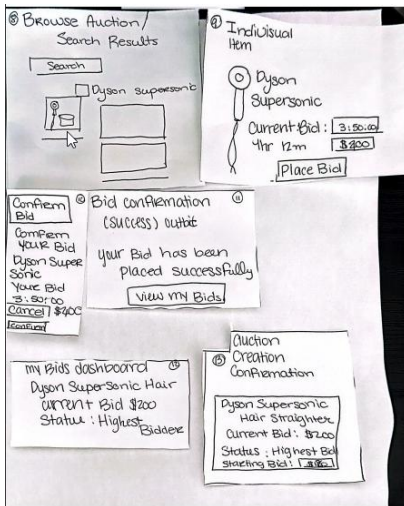 ⑧ Browse Auction/
Search Results
Search
Dyson supersonic
⑨ Indivisual
Item
Dyson
Supersonic
Current Bid: 3:50:00
4hr 12m $200
Place Bid
Confirm
Bid
⑩
Comfirm
Your Bid
Dyson Super
Sonic
Youre Bid
3:50:00
Cancel $200
Confirm
Bid confirmation ⑪
(success) outbit
your Bid has been
placed successfully
view my Bids
my Bids dashboard ⑫
Dyson Supersonic Hair
current Bid $200
Status : Highest
Bidder
Auction
⑬ Creation
Confirmation
Dyson Supersonic
Hair Straighter
Current Bid: $200
Status : Highest Bid
Starting Bid: